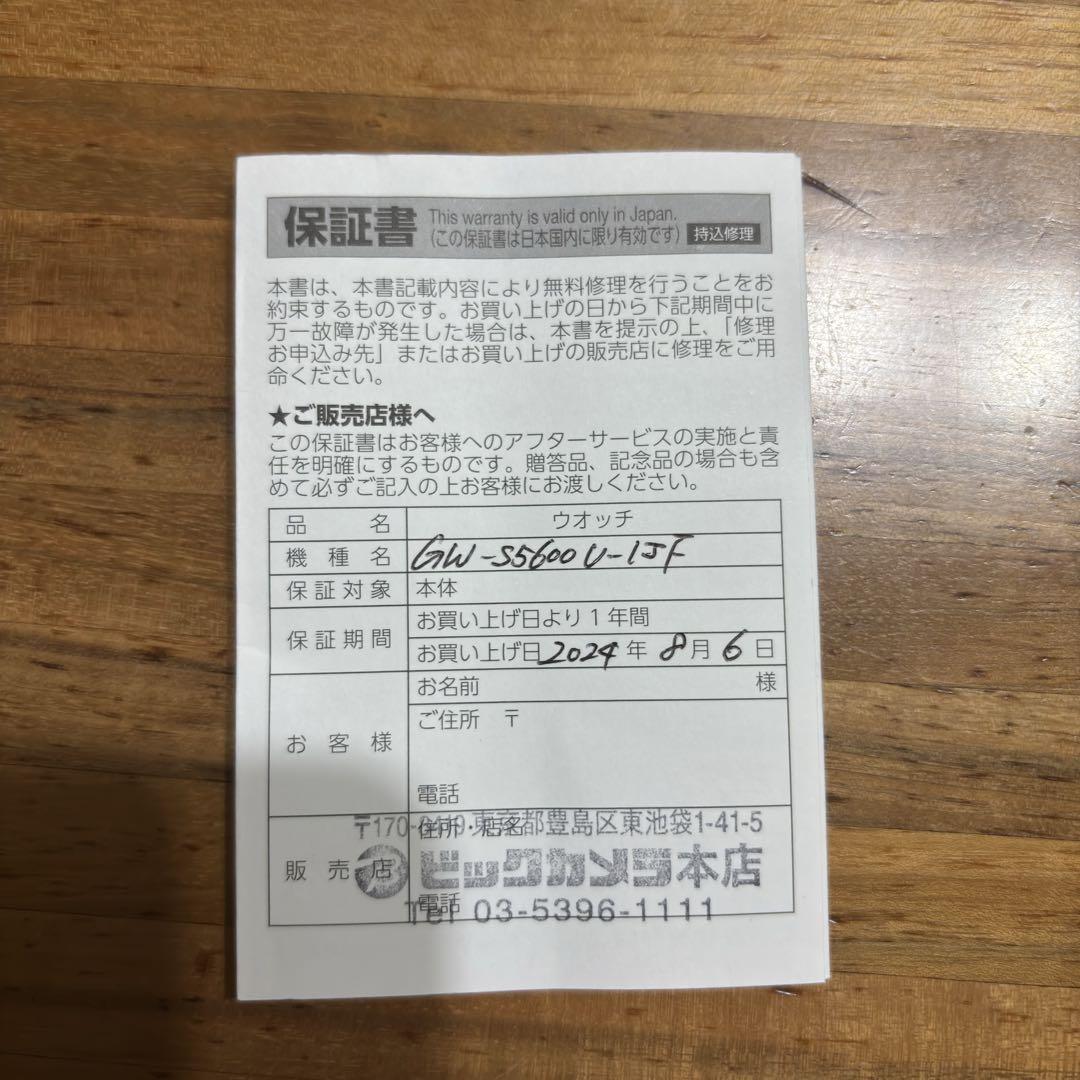 保証書 This warranty is valid only in Japan.
(この保証書は日本国内に限り有効です) 持込修理
本書は、本書記載内容により無料修理を行うことをお
約束するものです。お買い上げの日から下記期間中に
万一故障が発生した場合は、本書を提示の上、「修理
お申込み先」またはお買い上げの販売店に修理をご用
命ください。
★ご販売店様へ
この保証書はお客様へのアフターサービスの実施と責
任を明確にするものです。贈答品、記念品の場合も含
めて必ずご記入の上お客様にお渡しください。
品名 ウオッチ
機種名 GW-S5600U-1JF
保証対象 本体
保証期間 お買い上げ日より1年間
お買い上げ日 2024年 8月 6日
お客様 お名前 様
ご住所 〒
電話
販売店 住所・店名
〒170- 東京都豊島区東池袋1-41-5
ビックカメラ本店
電話
Tel 03-5396-1111